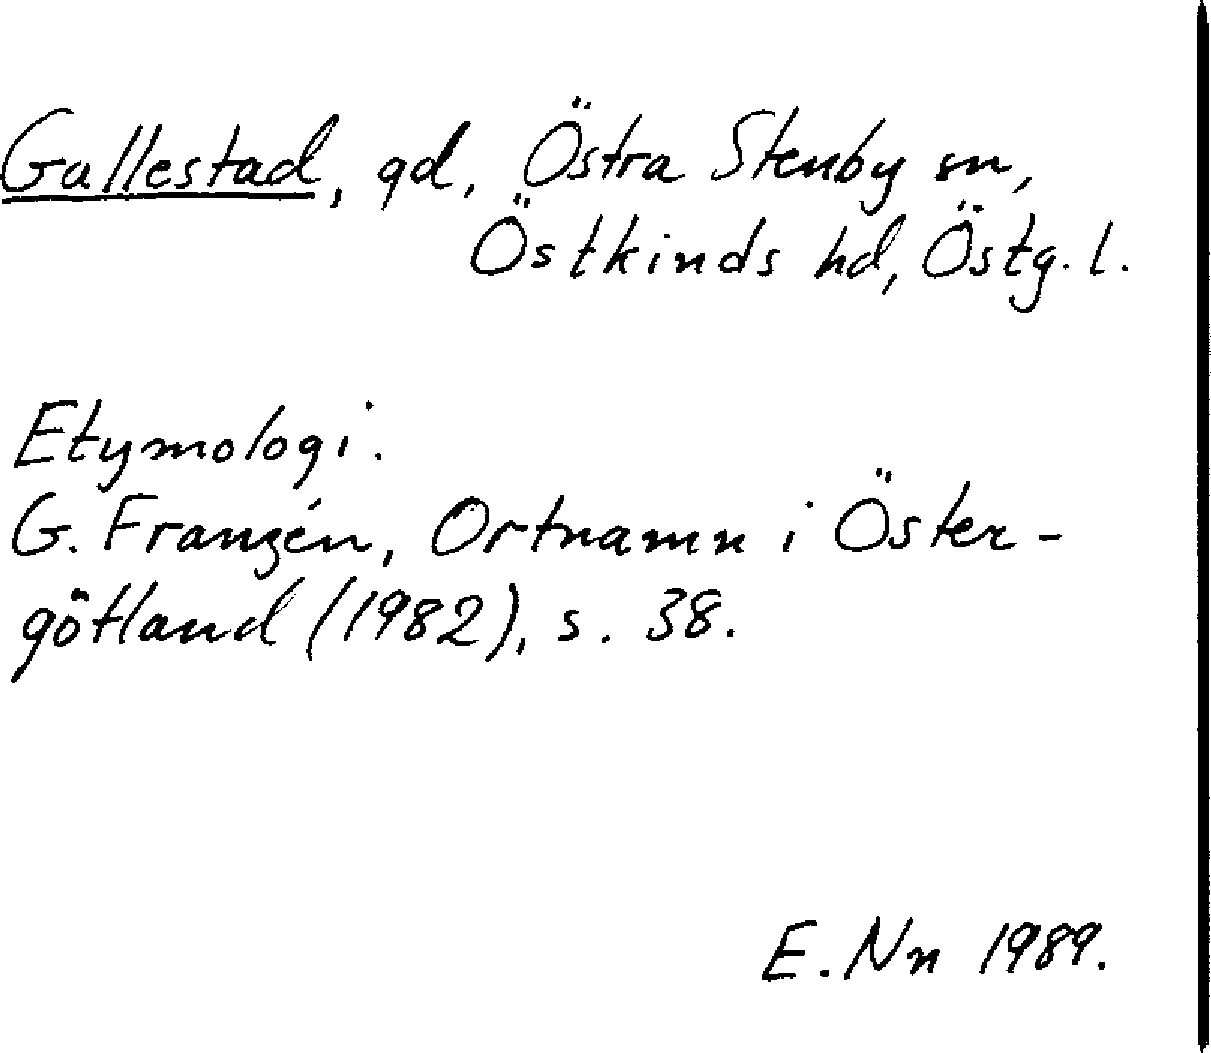 Gallestad, gd, Östra Stenby sn,
Östkinds hd, Östg. l.
Etymologi.
G. Franzén, Ortnamn i Öster-
götland (1982), s. 38.
E. Nn 1989.